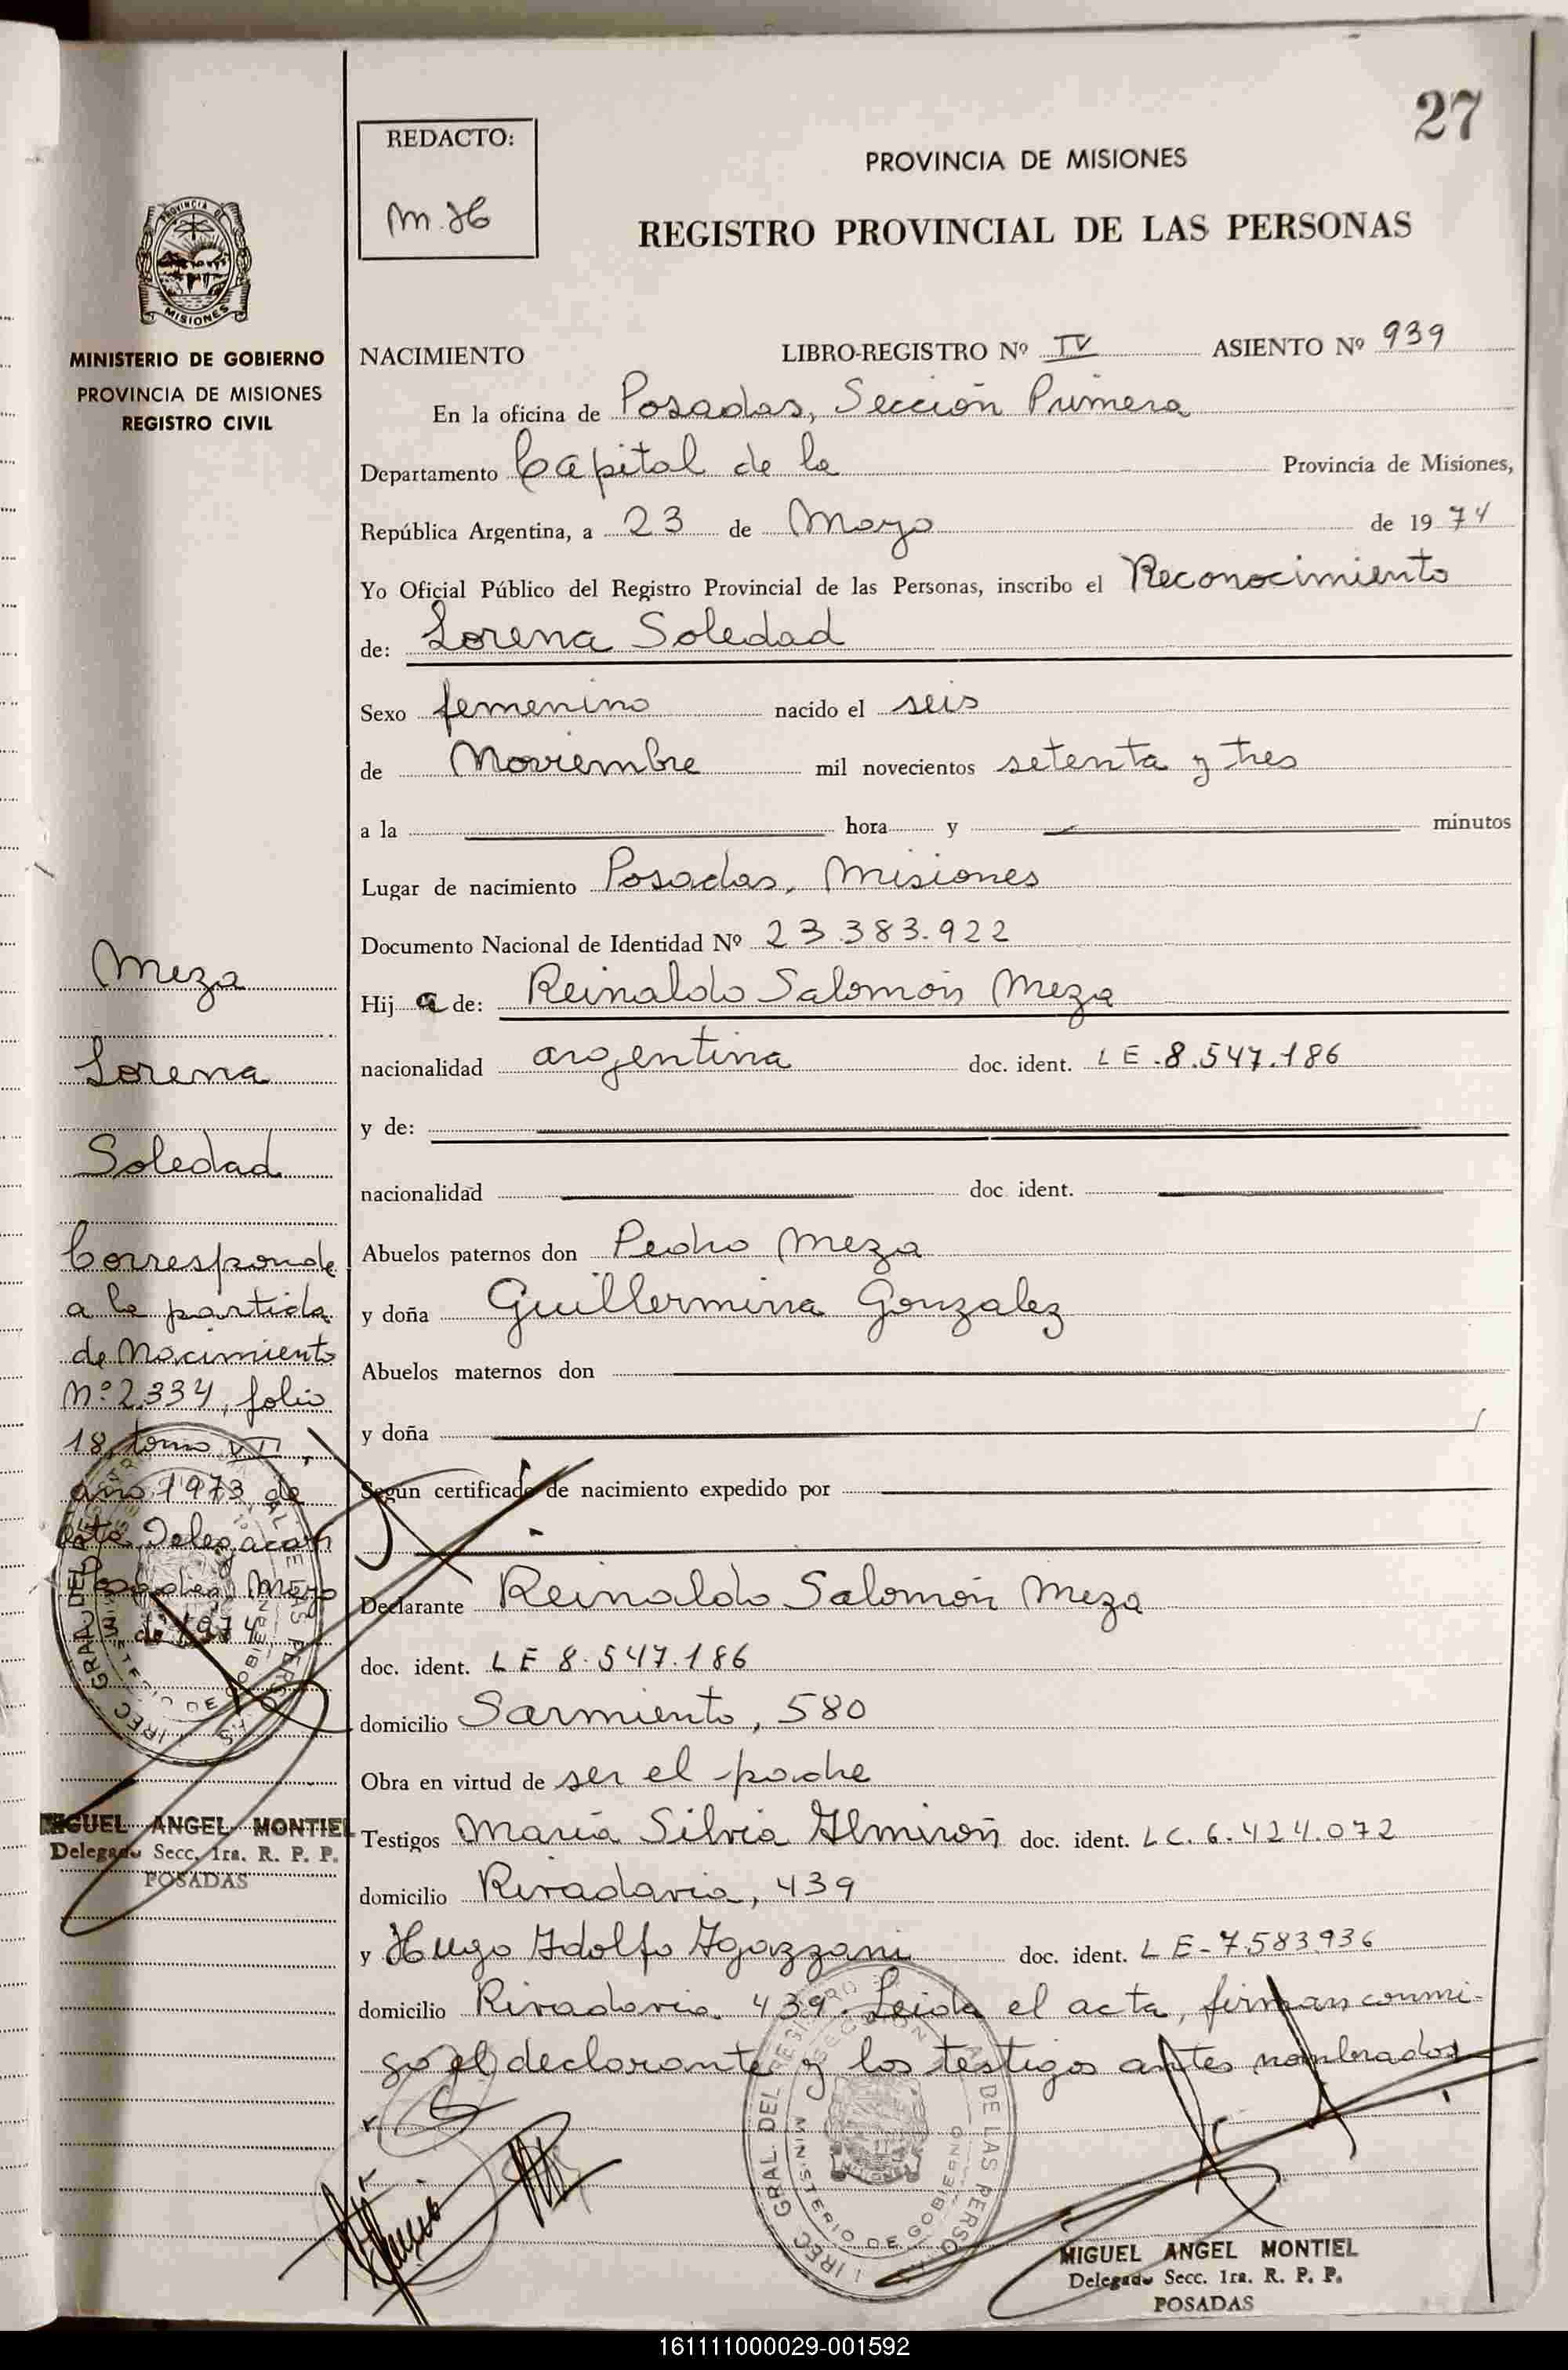 27
REDACTO:
M.H
PROVINCIA DE MISIONES
REGISTRO PROVINCIAL DE LAS PERSONAS
PROVINCIA DE
MISIONES
MINISTERIO DE GOBIERNO
PROVINCIA DE MISIONES
REGISTRO CIVIL
NACIMIENTO LIBRO-REGISTRO Nº IV ASIENTO Nº 939
En la oficina de Posadas, Sección Primera
Departamento Capital de la Provincia de Misiones,
República Argentina, a 23 de Mayo de 1974
Yo Oficial Público del Registro Provincial de las Personas, inscribo el Reconocimiento
de: Lorena Soledad
Sexo femenino nacido el seis
de Noviembre mil novecientos setenta y tres
a la hora y minutos
Lugar de nacimiento Posadas, Misiones
Documento Nacional de Identidad Nº 23.383.922
Hij a de: Reinaldo Salomón Meza
nacionalidad argentina doc. ident. LE.8.547.186
y de:
nacionalidad doc ident.
Abuelos paternos don Pedro Meza
y doña Guillermina Gonzalez
Abuelos maternos don
y doña
Según certificado de nacimiento expedido por
Declarante Reinaldo Salomón Meza
doc. ident. LE 8.547.186
domicilio Sarmiento, 580
Obra en virtud de ser el padre
Testigos María Silvia Almirón doc. ident. LC.6.424.072
domicilio Rivadavia, 439
y Hugo Adolfo Agazzani doc. ident. LE-7.583.936
domicilio Rivadavia 439. Leida el acta, firman conmi-
go el declarante y los testigos antes nombrados
MIGUEL ANGEL MONTIEL
Delegado Secc. 1ra. R. P. P.
POSADAS
Meza
Lorena
Soledad
Corresponde
a la partida
de Nacimiento
Nº 2.334, folio
18, tomo VII,
año 1973 de
esta Delegación
Posadas, Mayo
de 1974
MIGUEL ANGEL MONTIEL
Delegado Secc. 1ra. R. P. P.
POSADAS
161111000029-001592